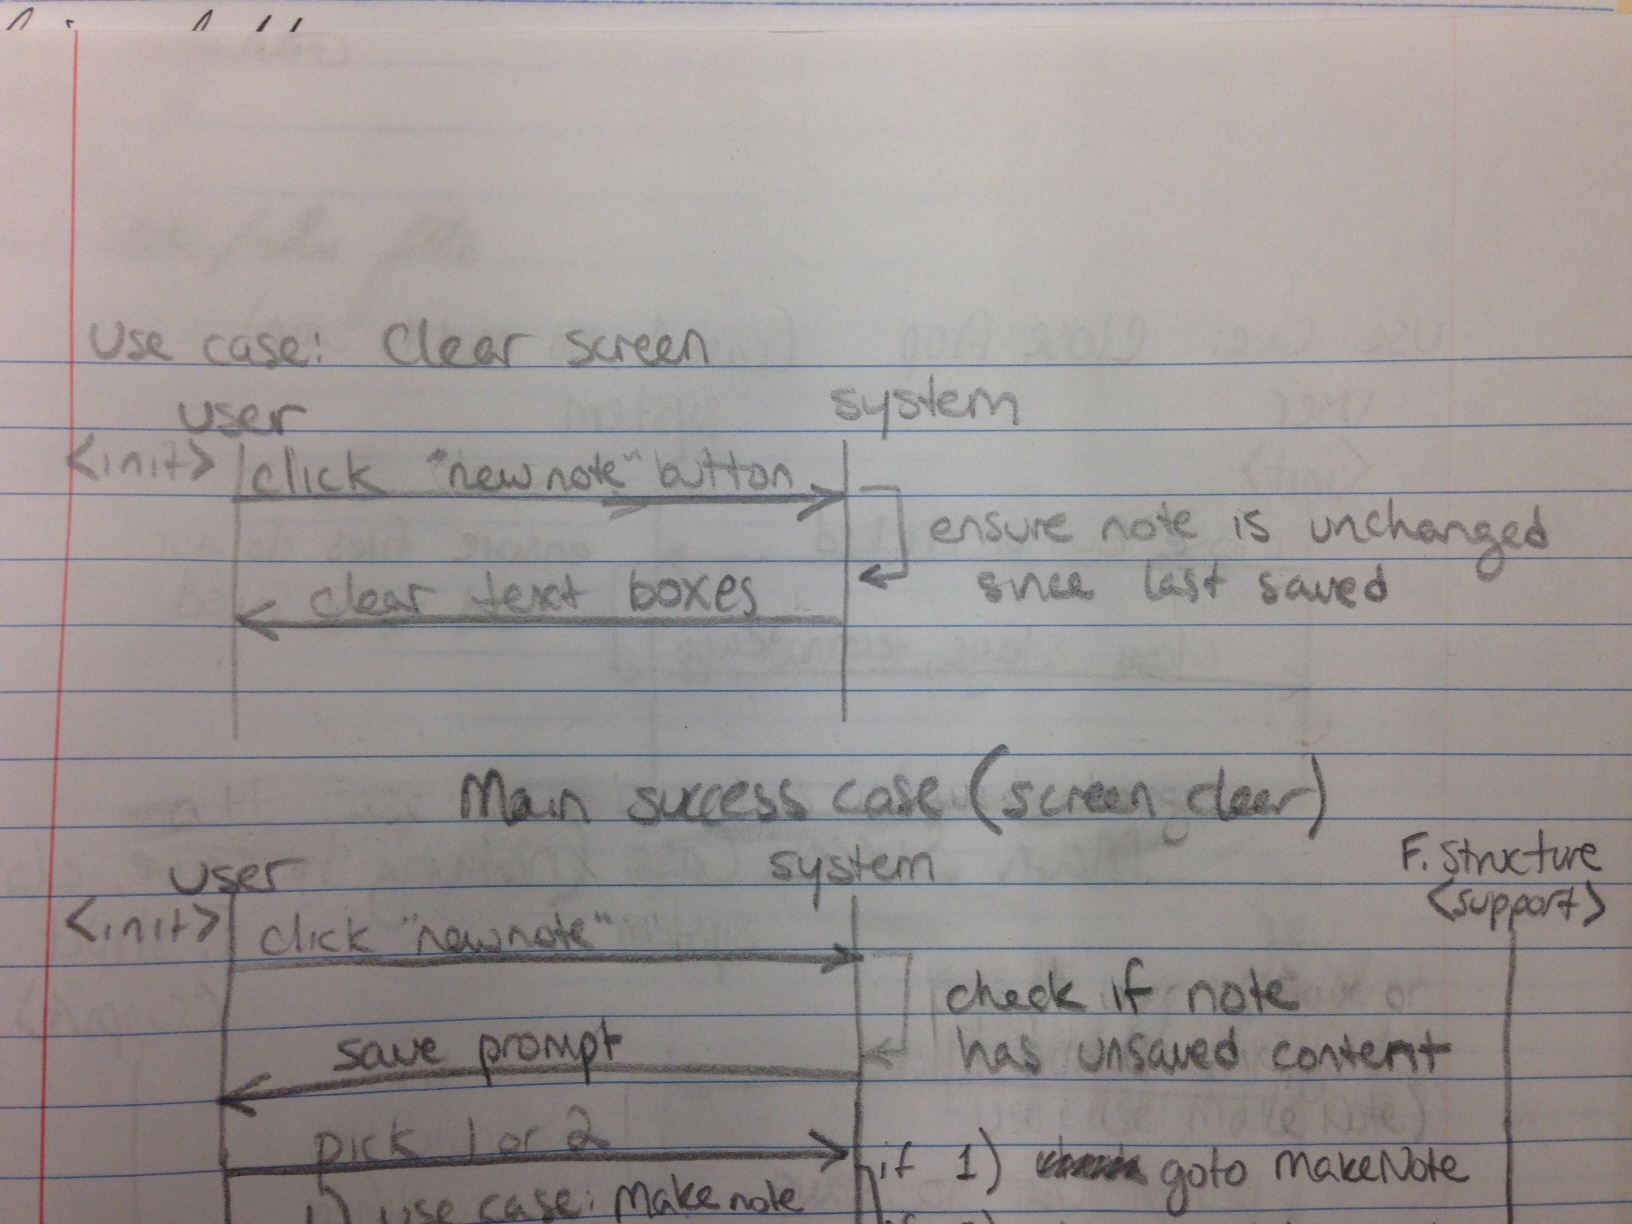 Use case: Clear screen
user system
<init> click "new note" button
ensure note is unchanged
since last saved
clear text boxes
Main success case (screen clear)
user system F. Structure
<support>
<init> click "new note"
check if note
has unsaved content
save prompt
pick 1 or 2
if 1) goto makeNote
1) use case: Make note